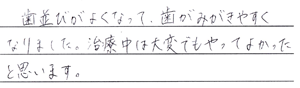 歯並びがよくなって、歯がみがきやすく
なりました。治療中は大変でもやってよかった
と思います。